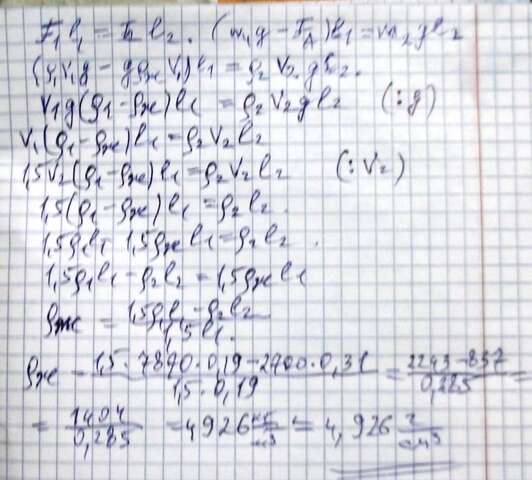 F₁l₁ = F₂l₂. (m₁g - F_A)l₁ = m₂gl₂
(ρ₁V₁g - gρжV₁)l₁ = ρ₂V₂gl₂.
V₁g(ρ₁ - ρж)l₁ = ρ₂V₂gl₂ (:g)
V₁(ρ₁ - ρж)l₁ = ρ₂V₂l₂
1,5V₂(ρ₁ - ρж)l₁ = ρ₂V₂l₂ (:V₂)
1,5(ρ₁ - ρж)l₁ = ρ₂l₂.
1,5ρ₁l₁ 1,5ρжl₁ = ρ₂l₂.
1,5ρ₁l₁ - ρ₂l₂ = 1,5ρжl₁
ρж = (1,5ρ₁l₁ - ρ₂l₂)/(1,5l₁.)
ρж = (1,5·7870·0,19 - 2700·0,31)/(1,5·0,19) = (2243 - 837)/0,285 =
= 1404/0,285 = 4926 кг/м³ = 4,926 г/см³